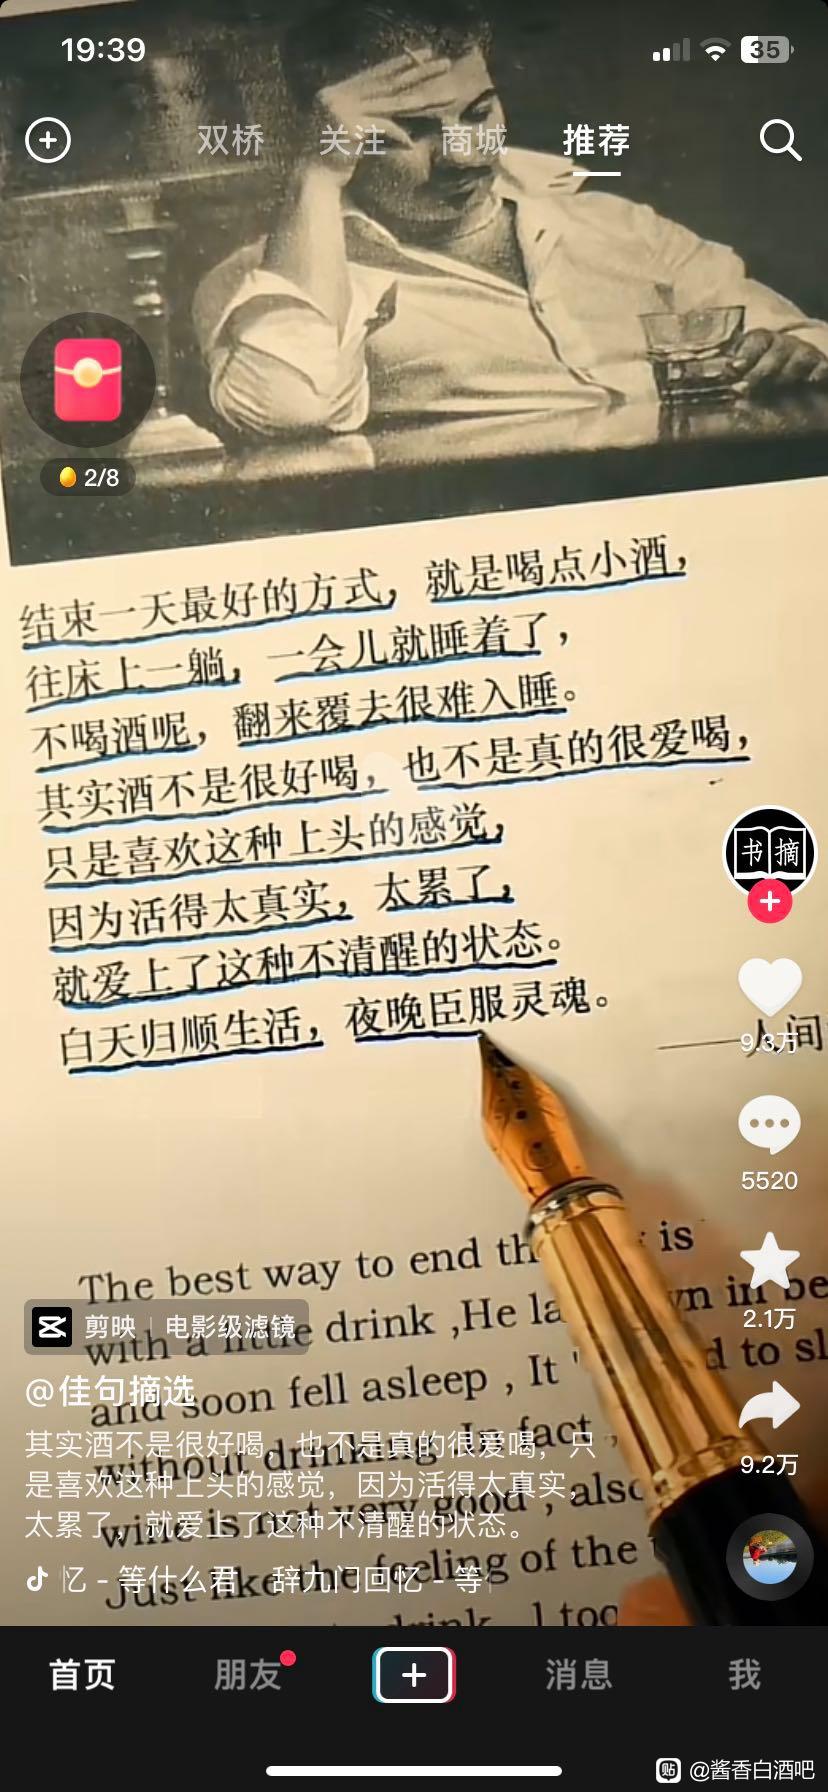 19:39
35
双桥 关注 商城 推荐
2/8
结束一天最好的方式，就是喝点小酒，
往床上一躺，一会儿就睡着了，
不喝酒呢，翻来覆去很难入睡。
其实酒不是很好喝，也不是真的很爱喝，
只是喜欢这种上头的感觉，
因为活得太真实，太累了，
就爱上了这种不清醒的状态。
白天归顺生活，夜晚臣服灵魂。
——人间
书摘
9.3万
5520
2.1万
9.2万
The best way to end is
with a little drink ,He in be
and soon fell asleep , It to sl
without drinking .In fact ,
wine is not very good , also
Just like the feeling of the
drink I too
剪映 | 电影级滤镜
@佳句摘选
其实酒不是很好喝，也不是真的很爱喝，只
是喜欢这种上头的感觉，因为活得太真实，
太累了，就爱上了这种不清醒的状态。
忆 - 等什么君 辞九门回忆 - 等
首页 朋友 消息 我
贴 @酱香白酒吧